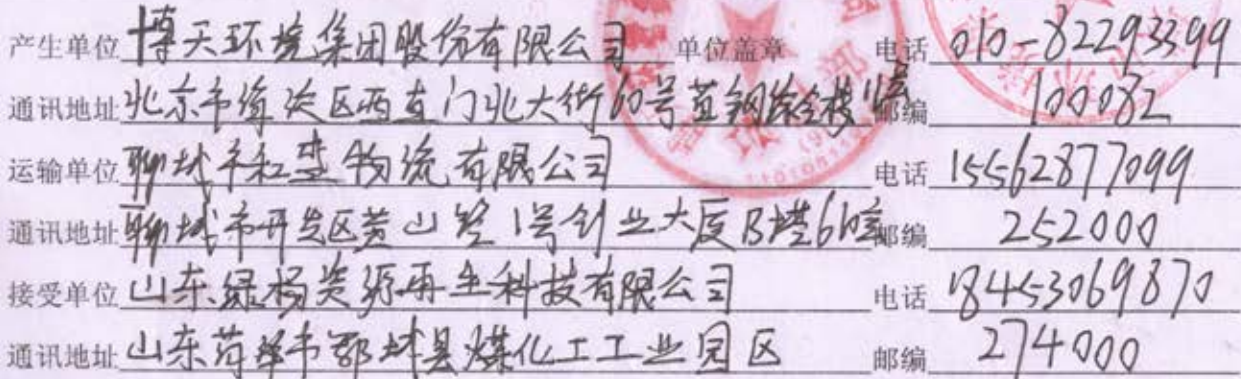 产生单位 博天环境集团股份有限公司 单位盖章 电话 010-82293399
通讯地址 北京市海淀区西直门北大街60号首钢综合楼 邮编 100082
运输单位 聊城市和 物流有限公司 电话 15562877099
通讯地址 聊城市开发区黄山路1号创业大厦B 邮编 252000
接受单位 山东绿杨资源再生科技有限公司 电话 18453069870
通讯地址 山东菏泽市鄄城县煤化工工业园区 邮编 274000